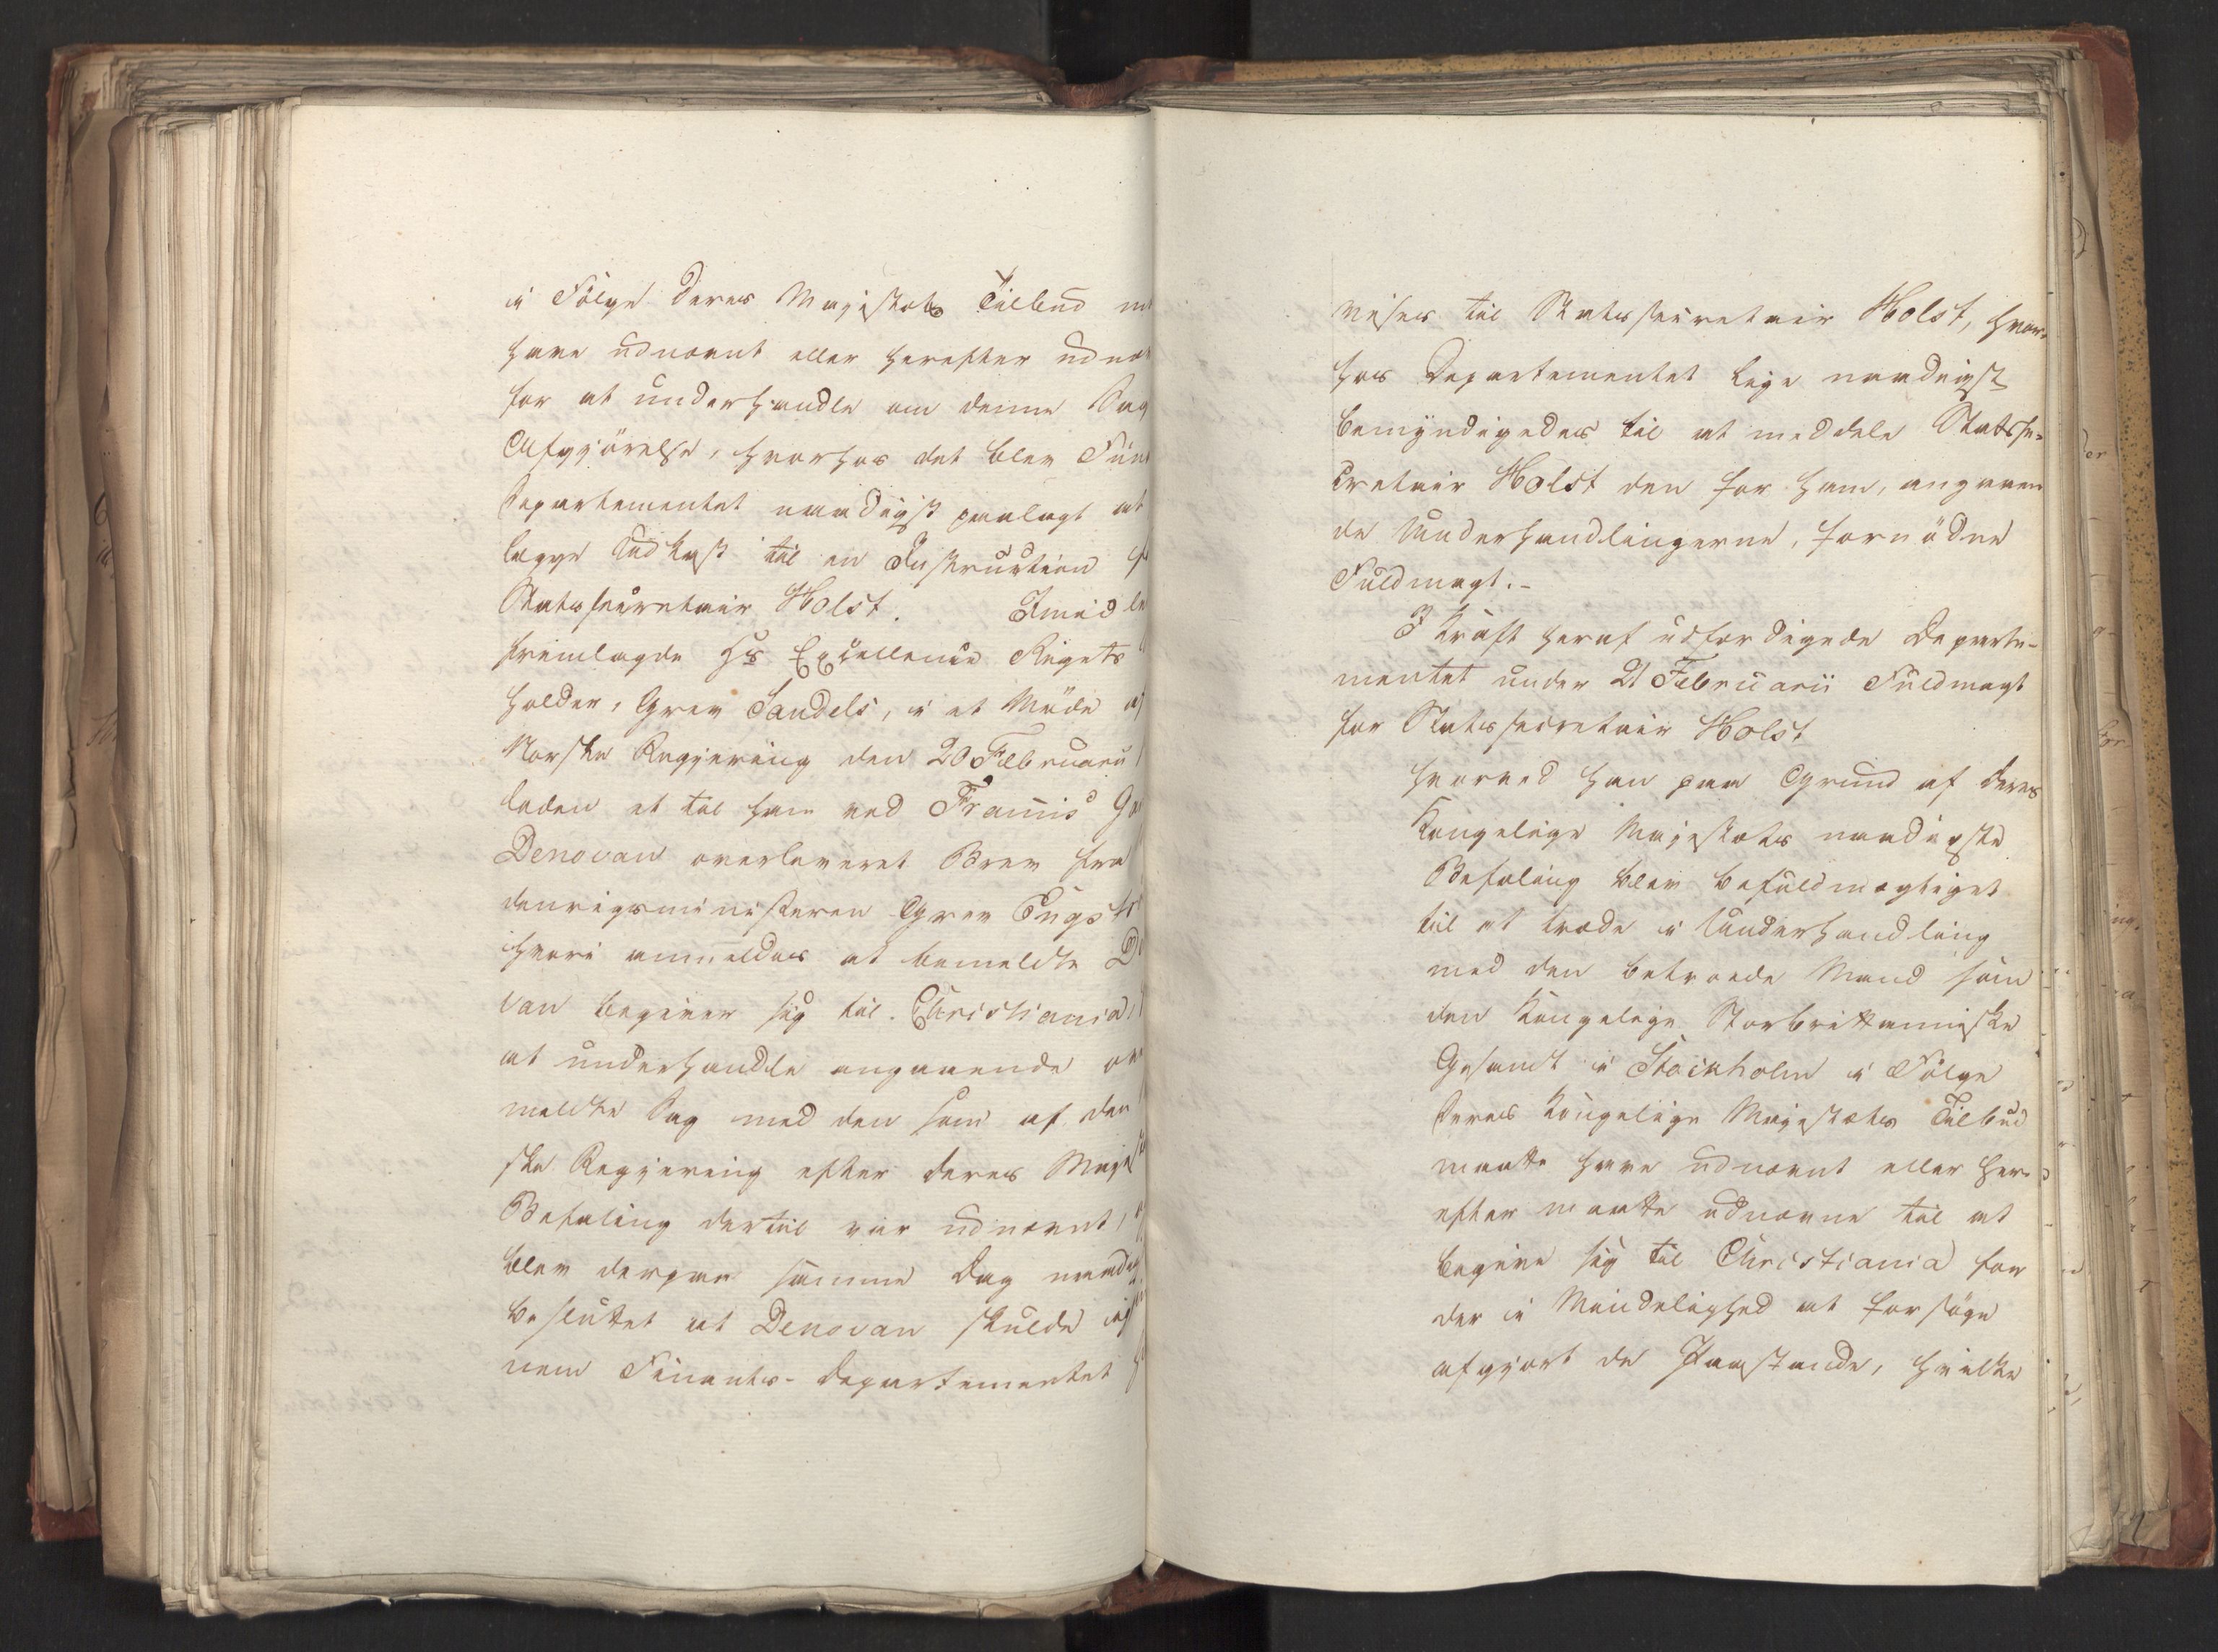 i Følge Deres Majestæts Tilbud
have udnævnt eller herefter
for at underhandle om denne Sag
Afgjørelse, hvorhos det blev
Departementet naadigst paalagt at
lægge Udkast til en Instruction
Statssecretair Holst. Imidle
fremlagde Hs Excellence Rigets
holder, Grev Sandels, i et Møde af
Norske Regjering den 20 Februarii
leden et til ham ved Francis
Denovan overleveret Brev fra
denrigsministeren Grev Engst
hvori anmeldes at bemeldte D
van begiver sig til Christiania,
at underhandle angaaende
meldte Sag med den som af den
ske Regjering efter Deres Maje
Befaling dertil var udnævnt,
blev derpaa samme Dag naadig
besluttet at Denovan skulde
nem Finants-Departementet
vises til Statssecretair Holst, hvor-
hos Departementet lige naadigst
bemyndigedes til at meddele Statsse-
cretair Holst den for ham, angaaen
de Underhandlingerne, fornødne
Fuldmagt.-
I Kraft heraf udfærdigede Departe-
mentet under 21 Februarii Fuldmagt
for Statssecretair Holst
hvorved han paa Grund af Deres
Kongelige Majestæts naadigste
Befaling blev befuldmægtiget
til at træde i Underhandling
med den betroede Mand som
den Kongelige Storbrittanniske
Gesandt i Stockholm i Følge
Deres Kongelige Majestæts Tilbud
maatte have udnævnt eller her-
efter maatte udnævne til at
begive sig til Christiania for
der i Mindelighed at forsøge
afgjort de Paastande, hvilke